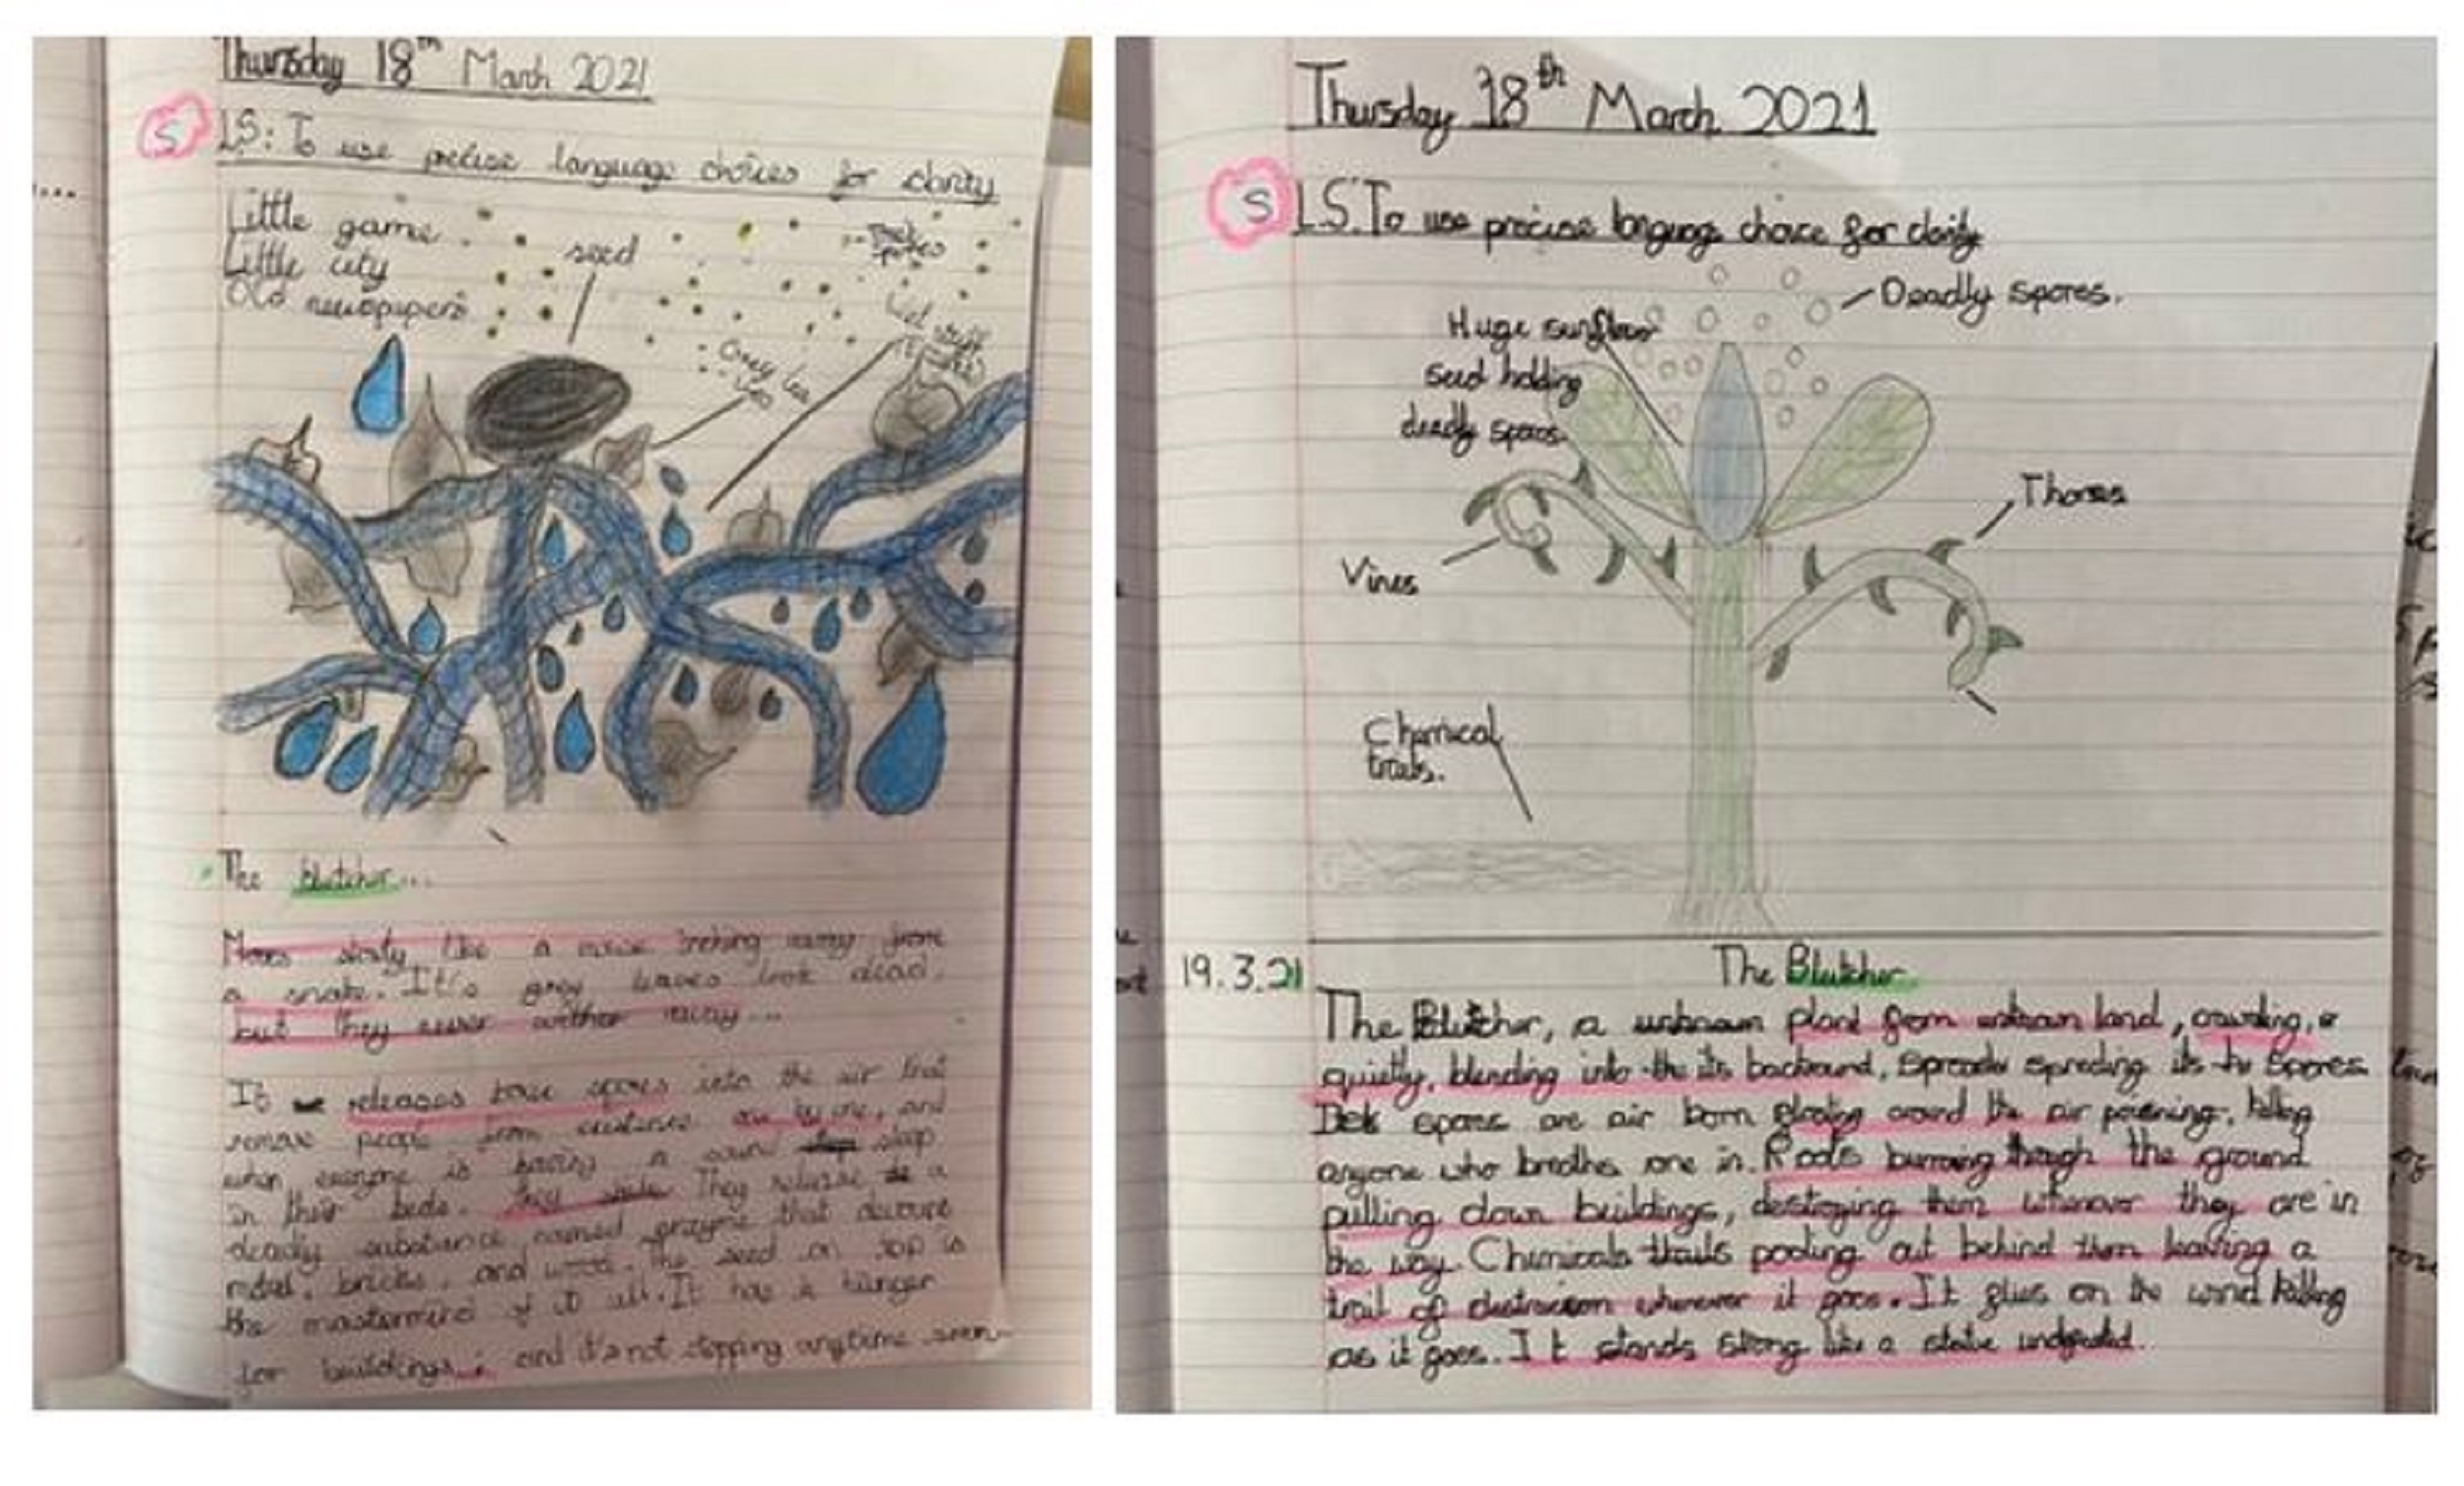 Thursday 18th March 2021
S
L.S: To use precise language choices for clarity
Little game
Little city
Old newspapers
seed
Grey
The Blutcher...
Moves slowly like a mouse inching away from
a snake. It's grey leaves look dead,
but they never wither away...
It releases toxic spores into the air that
remove people from existence one by one, and
when everyone is having a sound sleep
in their beds. They release a
deadly substance named enzyme that devours
metal, bricks, and wood. The seed on top is
the mastermind of it all. It has a hunger
for buildings... and it's not stopping anytime soon
Thursday 18th March 2021
S
L.S. To use precise language choice for clarity
Deadly spores.
Huge sunflower
seed holding
deadly spores.
Thornes
Vines
Chemical
trails.
19.3.21
The Blutcher
The Blutcher, a unknown plant from unknown land, crawling,
quietly, blending into the its backround, spreding its spores
spores are air born floating around the air poisening, killing
anyone who brethes one in. Roots burrowing through the ground
pulling down buildings, destroying them whenever they are in
the way. Chemicals trails pooling out behind them leaving a
trail of distruction wherever it goes. It glies on the wind killing
as it goes. It stands strong like a statue undefeated.